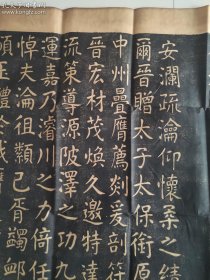 安瀾疏瀹仰懷柔之績
爾晉贈太子太保銜原
中州疊膺薦剡爰剖符
晉宏材茂煥久邀特達
流策導源陂澤之功九
運嘉乃濬川之力倚任
悼夫淪徂纇已胥蠲卹